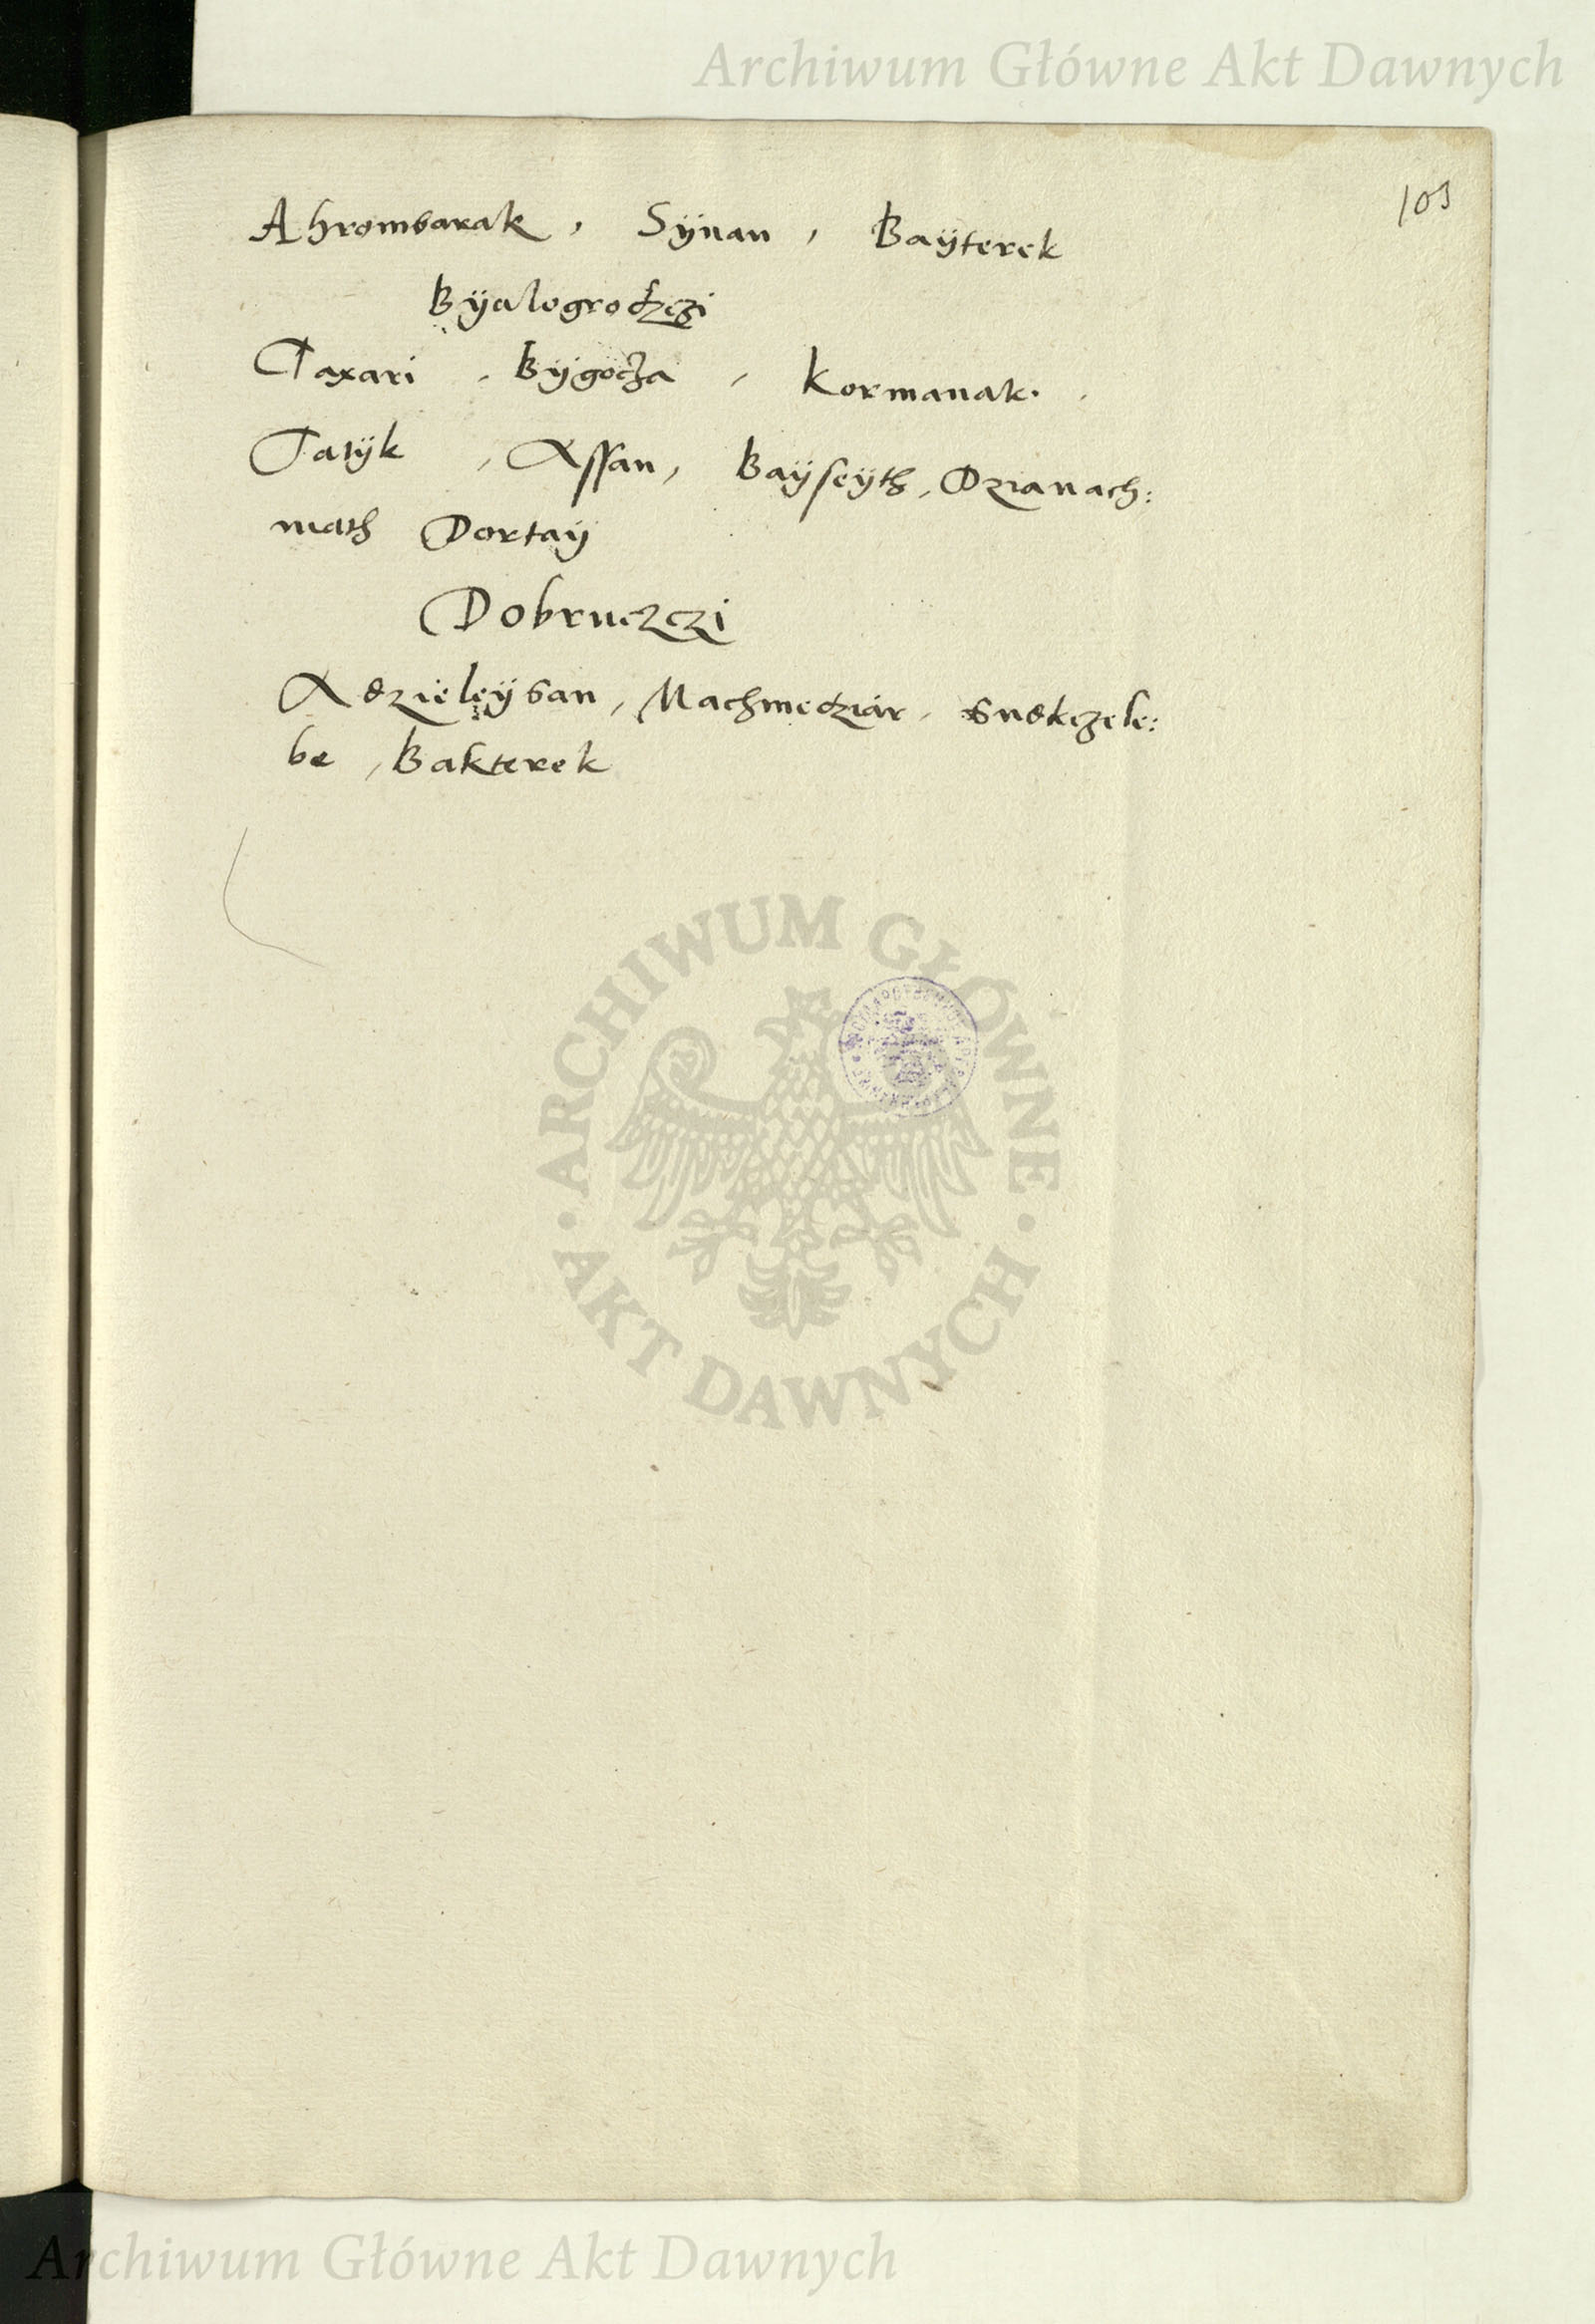 Archiwum Główne Akt Dawnych
103
Ahrombarak, Sÿnan, Baÿterek
Bÿalogrodzczi
Taxari, Bÿgodza, Kormanak.
Tatÿk, Assan, Baÿseÿth, Dzianach:
math Dortaÿ
Dobruczczi
Adzieleÿban, Machmedziar,
be, Bakterek
ARCHIWUM GŁÓWNE
AKT DAWNYCH
Archiwum Główne Akt Dawnych